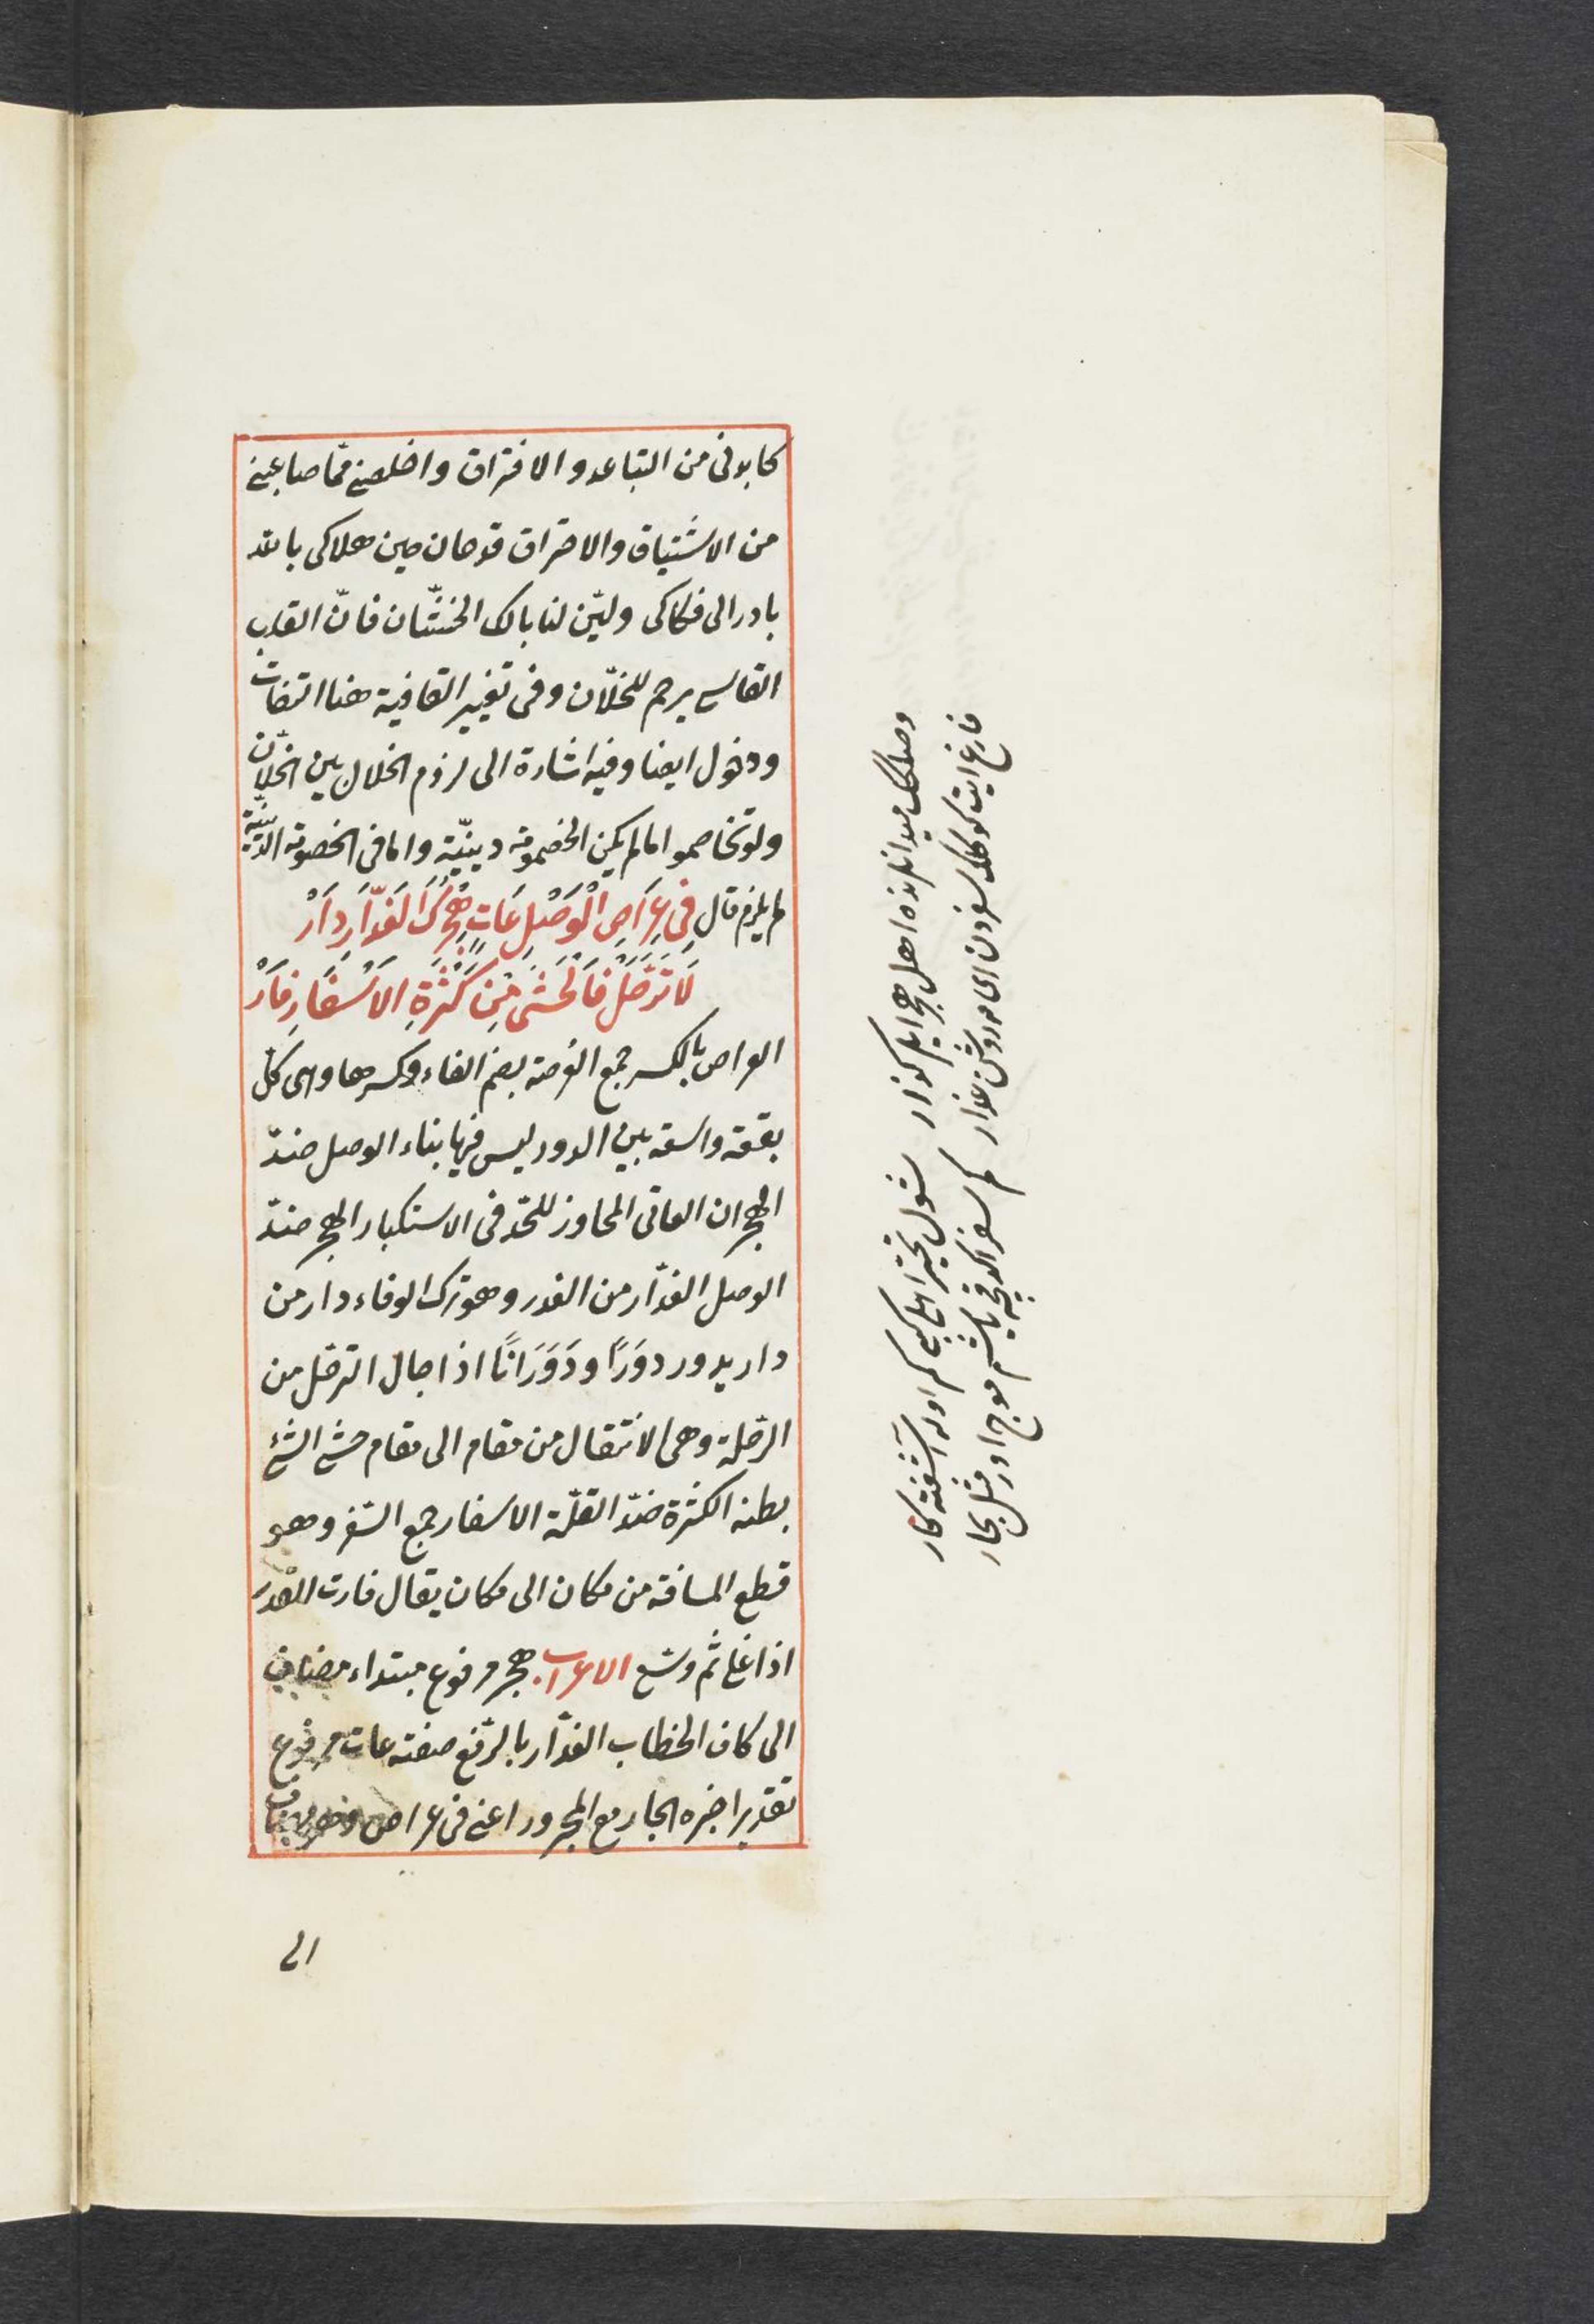 كابدنى من التباعد والافتراق واخلصنى مما صابنى
من الاشتياق والاحتراق قد حان حين هلاكى بالله
بادر الى فكاكى وليّن لنا بالك الخشنان فانّ القلب
القاسى يرحم للخلّان وفى تغيير القافية هنا التفات
ودخول ايضا وفيه اشارة الى لزوم الخلال بين الخلّان
ولو تخاصموا مالم يكن الخصومة دينيّة واما فى الخصومة الدينيّة
لم يلزم قال فِى عِرَاصِ الْوَصْلِ عَاتٍ هَجْرُكَ الغَدَّارُ دَارْ
لَا تَرَحَّلْ فَالْحَشَى مِنْ كَثْرَةِ الاَسْفَارِ فَارْ
العراص بالكسر جمع العرصة بضم الفاء وكسرها وهى كل
بقعة واسعة بين الدور ليس فيها بناء الوصل ضدّ
الهجران العاتى المجاوز للحّد فى الاستكبار الهجر ضدّ
الوصل الغدّار من الغدر وهو ترك الوفاء دار من
دار يدور دوَرًا ودَوَرَانًا اذا جال الترحّل من
الرحلة وهى الانتقال من مقام الى مقام حشى الشئ
بطنه الكثرة ضدّ القلّة الاسفار جمع السّفر وهو
قطع المسافة من مكان الى مكان يقال فارت القدر
اذا غلى ثم وسّع الاعراب هجر مرفوع مبتداء مضاف
الى كاف الخطاب الغدّار بالرّفع صفته عات مرفوع
تقديرا خبره الجار مع المجرور اعنى فى عراص
الى
وصلك ميدانلرنده اهل هجر ايلر كذار
شول تحيّر اهلى كبى كم اوله آشفته كار
فارغ ايت كوكلك سفردن اى مه روشن عذار
كم سفر اكدقجه ياشم موج اورر مثل بحار